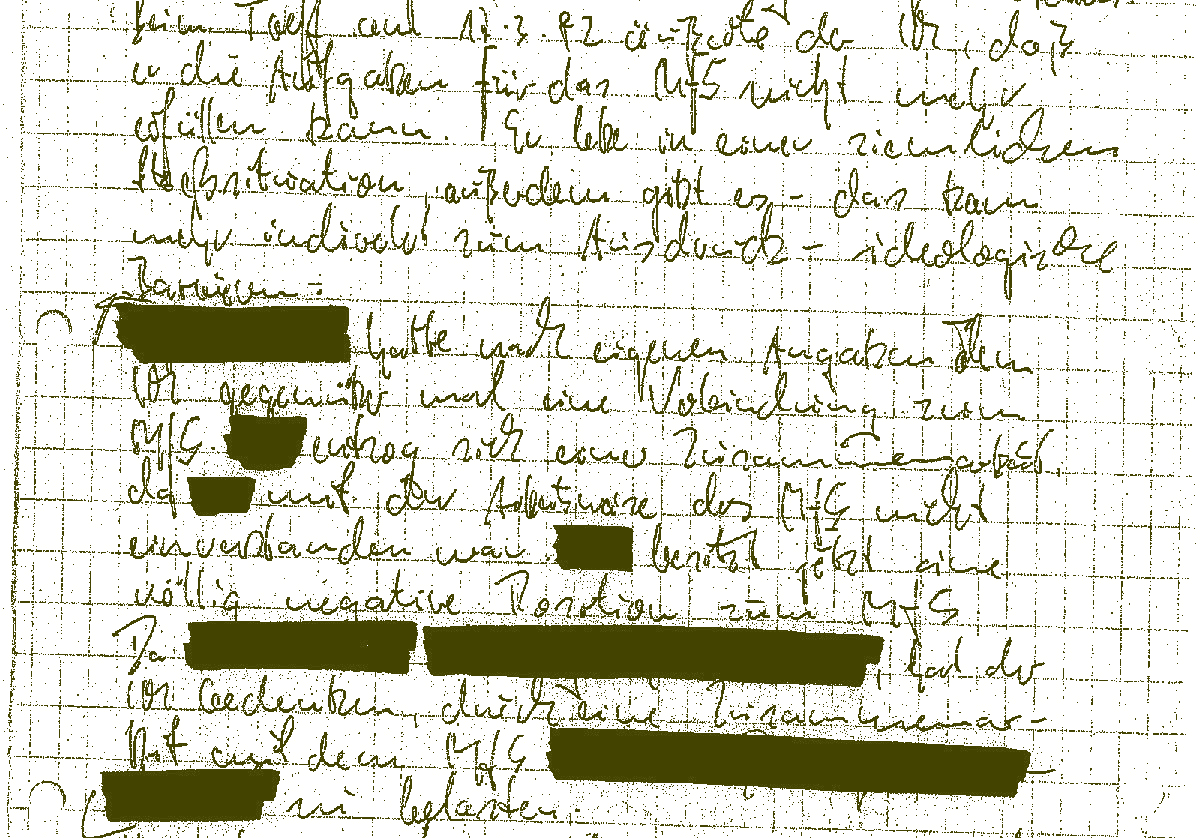 beim Treff am 17.3.82 äußerte der IM, daß
er die Aufgaben für das MfS nicht mehr
erfüllen kann. Er lebe in einer ziemlichen
Streßsituation, außerdem gibt es – das kam
mehr indirekt zum Ausdruck – ideologische
hatte nach eigenen Angaben dem
IM gegenüber mal eine Verbindung zum
MfS entzog sich einer Zusammenarbeit,
da mit der Arbeitsweise des MfS nicht
einverstanden war. besitzt jetzt eine
völlig negative Position zum MfS
Da , hat der
IM Bedenken, durch eine Zusammenar-
beit mit dem MfS
zu belasten.